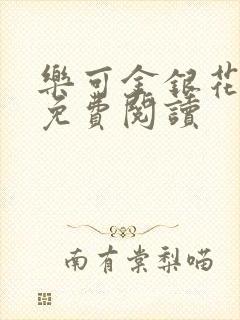 樂可金銀花
免費閱讀
南有棠梨喵